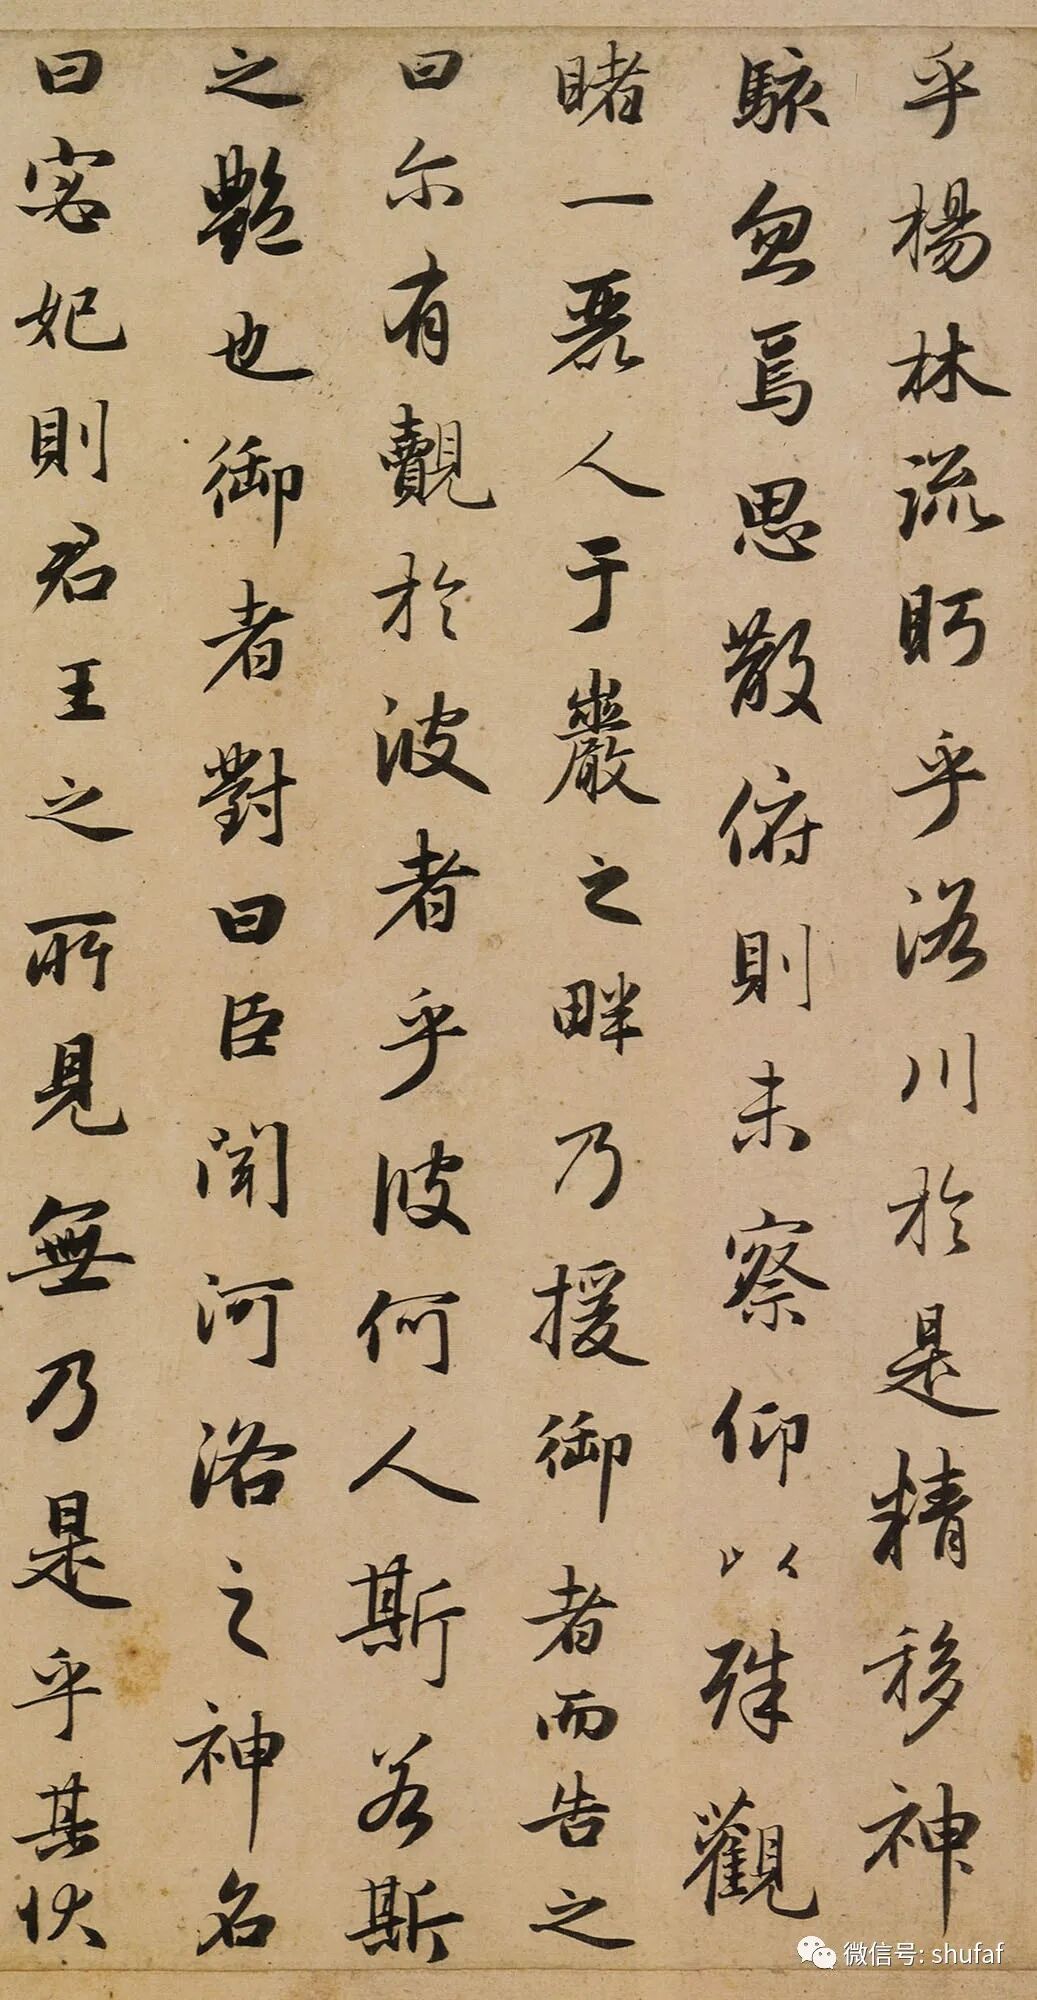 乎楊林流眄乎洛川於是精移神
駭忽焉思散俯則未察仰以殊觀
睹一麗人于巖之畔乃援御者而告之
曰尔有覿於彼者乎彼何人斯若斯
之艷也御者對曰臣聞河洛之神名
曰宓妃則君王之所見無乃是乎其狀
微信号: shufaf